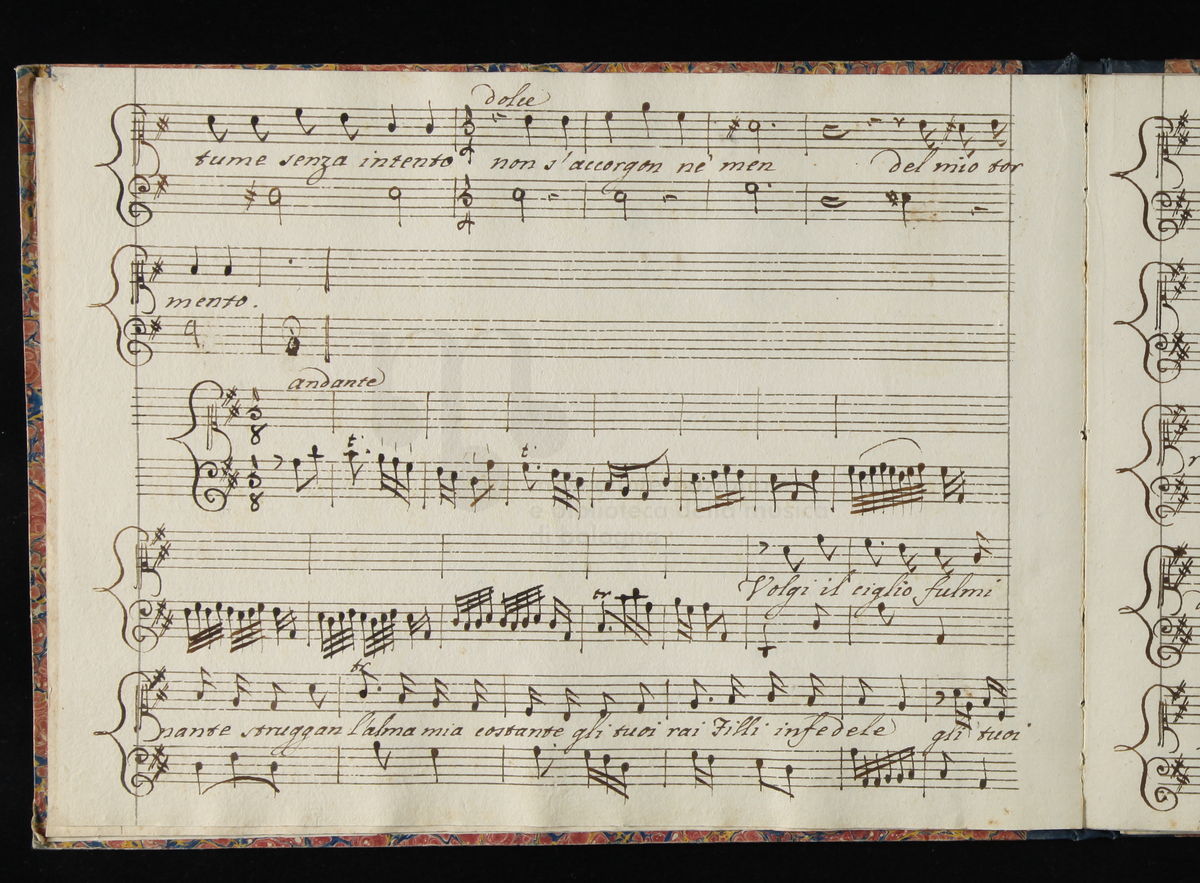 dolce
tume senza intento non s'accorgon nè men del mio tor
mento.
andante
t. t.
e biblioteca della musica
di bologna
Volgi il ciglio fulmi
tr
tr
nante struggan l'alma mia costante gli tuoi rai Filli infedele gli tuoi